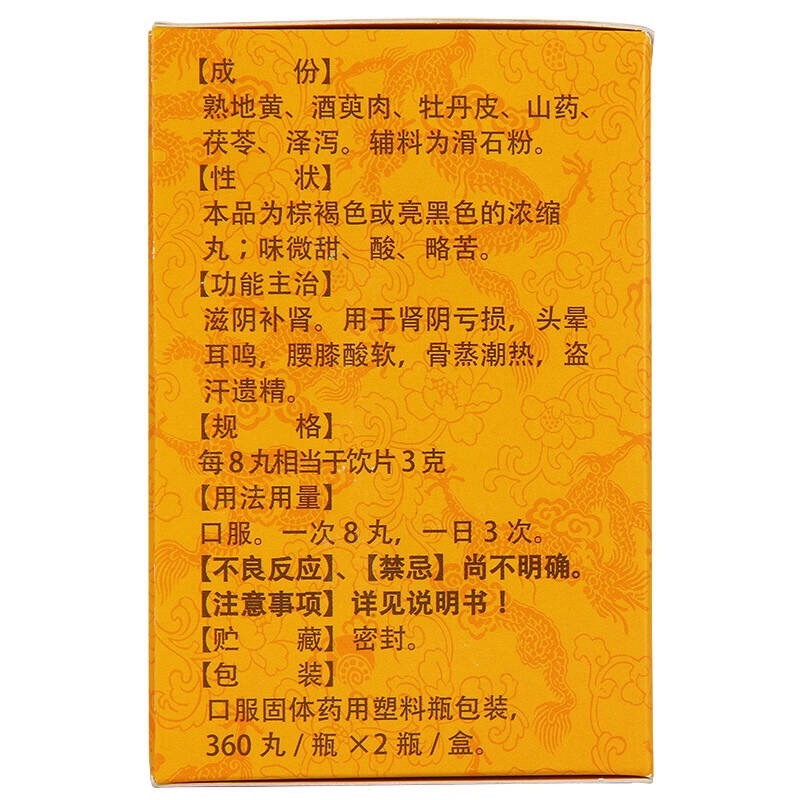 【成 份】
熟地黄、酒萸肉、牡丹皮、山药、
茯苓、泽泻。辅料为滑石粉。
【性 状】
本品为棕褐色或亮黑色的浓缩
丸；味微甜、酸、略苦。
【功能主治】
滋阴补肾。用于肾阴亏损，头晕
耳鸣，腰膝酸软，骨蒸潮热，盗
汗遗精。
【规 格】
每8丸相当于饮片3克
【用法用量】
口服。一次8丸，一日3次。
【不良反应】、【禁忌】尚不明确。
【注意事项】详见说明书！
【贮 藏】密封。
【包 装】
口服固体药用塑料瓶包装，
360丸/瓶×2瓶/盒。